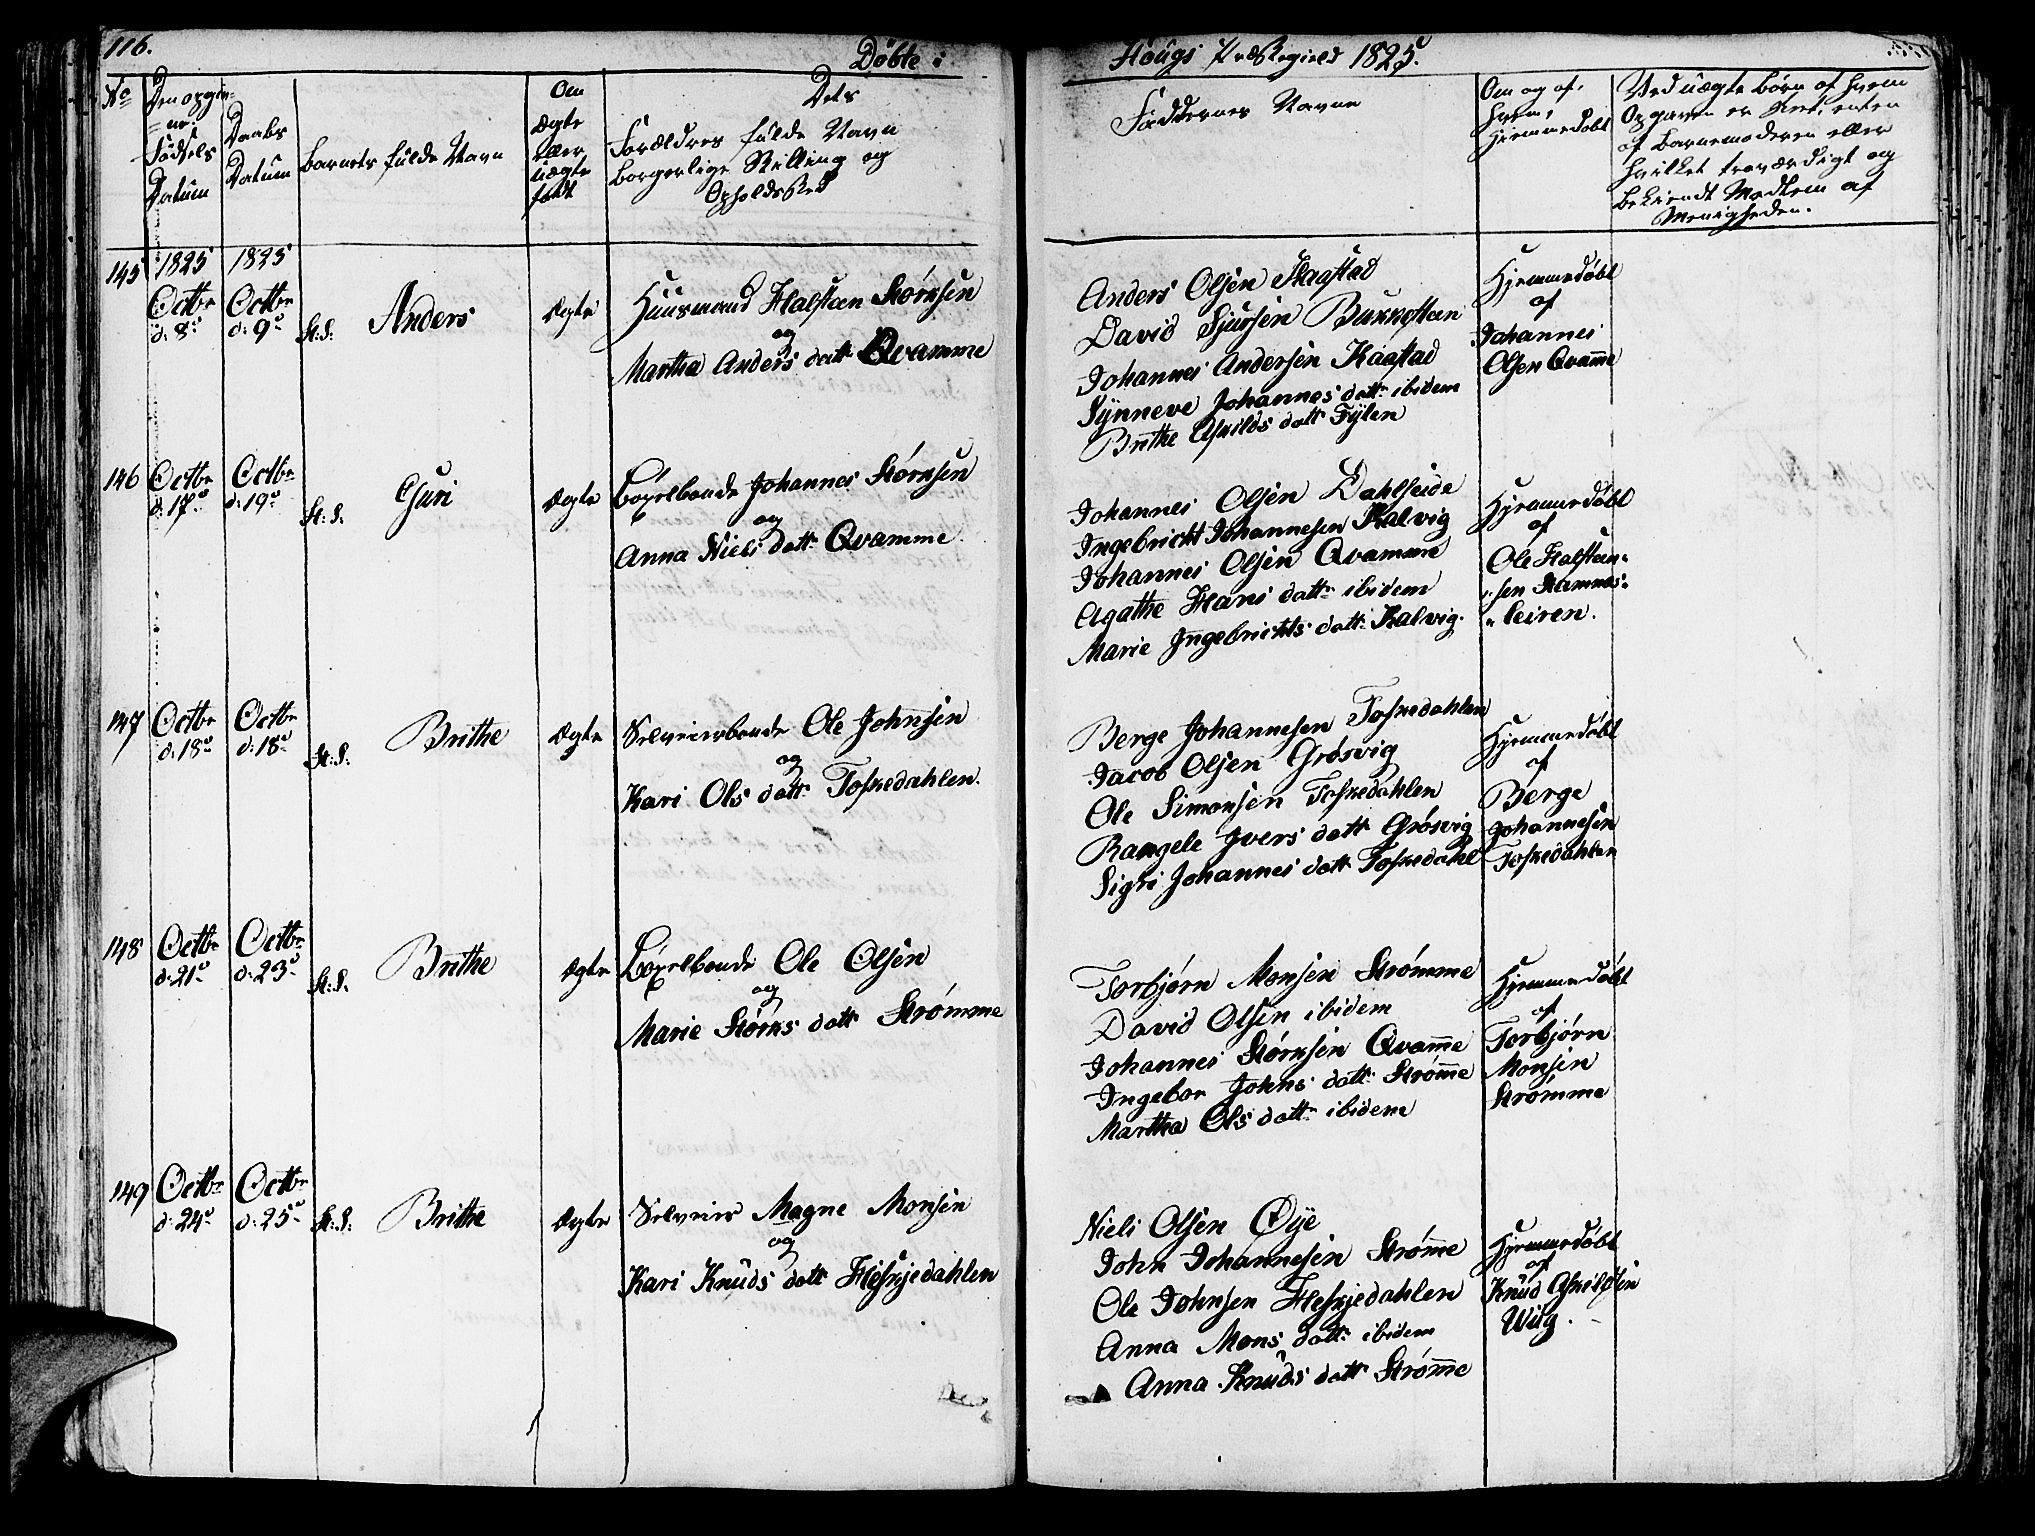 116.
Döbte i
Hougs Præstegield 1825.
No
Den opgiv=
=ne
Födsels
Datum
Daabs
Datum
Barnets fulde Navn
Om
Ægte
eller
uægte
födt
Dets
Forældres fulde Navn
borgerlige Stilling og
Opholdsted
Faddernes Navne
Om og af
hvem
Hjemmedöbt
Ved uægte börn af hvem
Opgaven er skeet, enten
af Barnemoderen eller
hvilket troværdigt og
bekiendt Medlem af
Menigheden.
145
1825
Octbr
d: 8de
1825
Octbr
d: 9de
St: S:
Anders
Ægte
Huusmand Halsteen Störksen
og
Martha Anders datt Qvamme
Anders Olsen Kaastad
David Sjursen
Johannes Andersen Kaastad
Synneve Johannes datt: ibidem
Brithe Askilds datt: Fylen
Hjemmedöbt
af
Johannes
Olsen Qvam̅e
146
Octbr
d: 17de
Octbr
d: 19de
St: S:
Guri
Ægte
Böxelbonde Johannes Störksen
og
Anna Niels datt: Qvamme.
Johannes Olsen Dahlseide
Ingebricht Johannesen Kalvig
Johannes Olsen Qvamme
Agathe Hans datt: ibidem
Marie Ingebrichts datt: Kalvig.
Hjemmedöbt
af
Ole Halsteen=
"sen Hammes=
"leiren.
147
Octbr
d: 18de
Octbr
d: 18de
St: S:
Brithe
Ægte
Selveierbonde Ole Johnsen
og
Kari Ols datt: Toskedahlen.
Berge Johannesen Toskedahlen
Jacob Olsen Grösvig
Ole Simonsen Toskedahlen
Rangele Ivers datt: Grösvig
Sigri Johannes datt: Toskedahl
Hjemmedöbt
af
Berge
Johannesen
Toskedahlen
148
Octbr
d: 21de
Octbr
d: 23de
St: S:
Brithe
Ægte
Böxelbonde Ole Olsen
og
Marie Störks datt: Strömme
Torbjörn Monsen Strömme
David Olsen ibidem
Johannes Störksen Qvam̅e
Ingebor Johns datt: Ström̅e
Martha Ols datt: ibidem
Hjemmedöbt
af
Torbjörn
Monsen
Strömme
149
Octbr
d: 24de
Octbr
d: 25de
St: S:
Brithe
Ægte
Selveier Magne Monsen
og
Kari Knuds datt: Heskjedahlen
Niels Olsen Öÿe
John Johannesen Ström̅e
Ole Johnsen Heskjedahlen
Anna Mons datt: ibidem
Anna Knuds datt: Ström̅e
Hjemmedöbt
af
Knud Askildsen
Wiig.